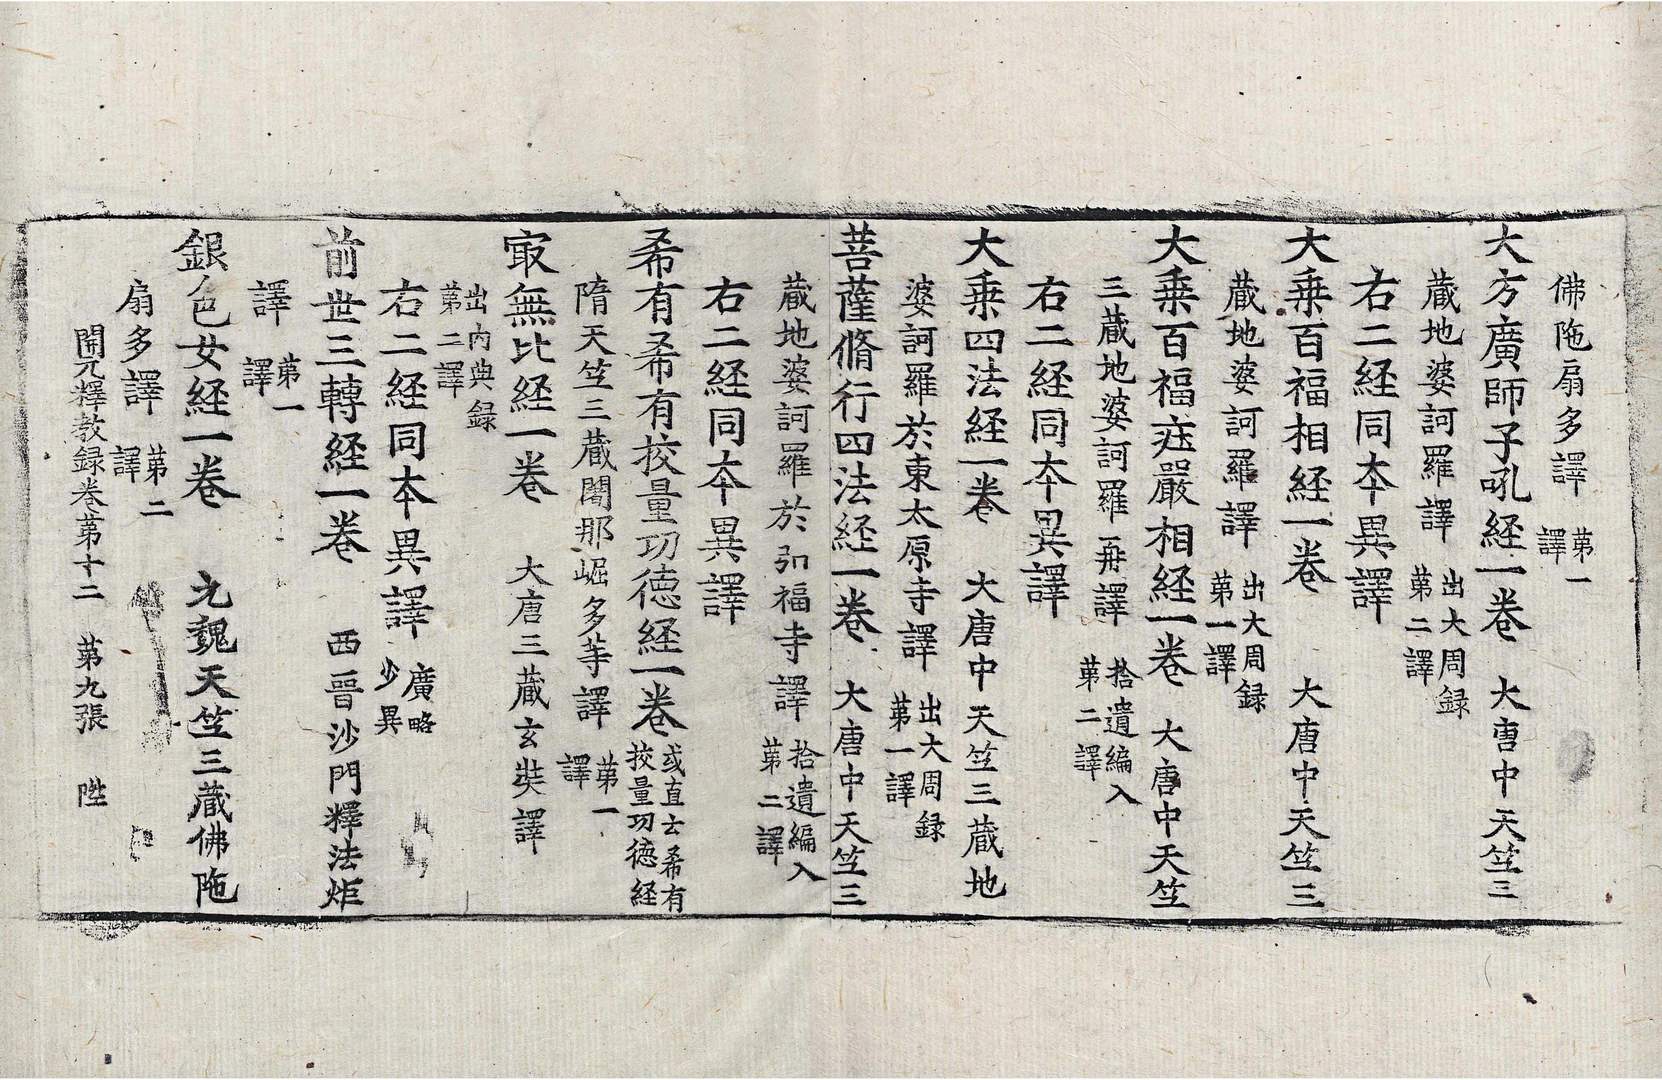 佛陁扇多譯 第一譯
大方廣師子吼経一卷 大唐中天竺三
藏地婆訶羅譯 出大周録第二譯
右二経同本異譯
大乗百福相経一卷 大唐中天竺三
藏地婆訶羅譯 出大周録第一譯
大乗百福㽵嚴相経一卷 大唐中天竺
三藏地婆訶羅再譯 拾遺編入第二譯
右二経同本異譯
大乗四法経一卷 大唐中天竺三藏地
婆訶羅於東太原寺譯 出大周録第一譯
菩薩脩行四法経一卷 大唐中天竺三
藏地婆訶羅於弘福寺譯 拾遺編入第二譯
右二経同本異譯
希有希有挍量功徳経一卷 或直云希有挍量功徳経
隋天竺三藏闍那崛多等譯 第一譯
㝡無比経一卷 大唐三藏玄奘譯
出内典録第二譯
右二経同本異譯 廣略少異
前世三轉経一卷 西晉沙門釋法炬
譯 第一譯
銀色女経一卷 元魏天竺三藏佛陁
扇多譯 第二譯
開元釋教録卷第十二 第九張 陛